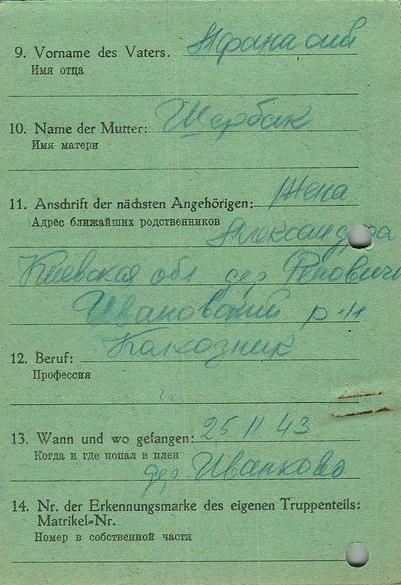 9. Vorname des Vaters. Афанасий
Имя отца
10. Name der Mutter: Щербак
Имя матери
11. Anschrift der nächsten Angehörigen: Жена
Адрес ближайших родственников Александра
Киевская обл дер
Ивановский р-н
12. Beruf: Колхозник
Профессия
13. Wann und wo gefangen: 25 11 43
Когда и где попал в плен
дер Иванково
14. Nr. der Erkennungsmarke des eigenen Truppenteils:
Matrikel-Nr.
Номер в собственной части